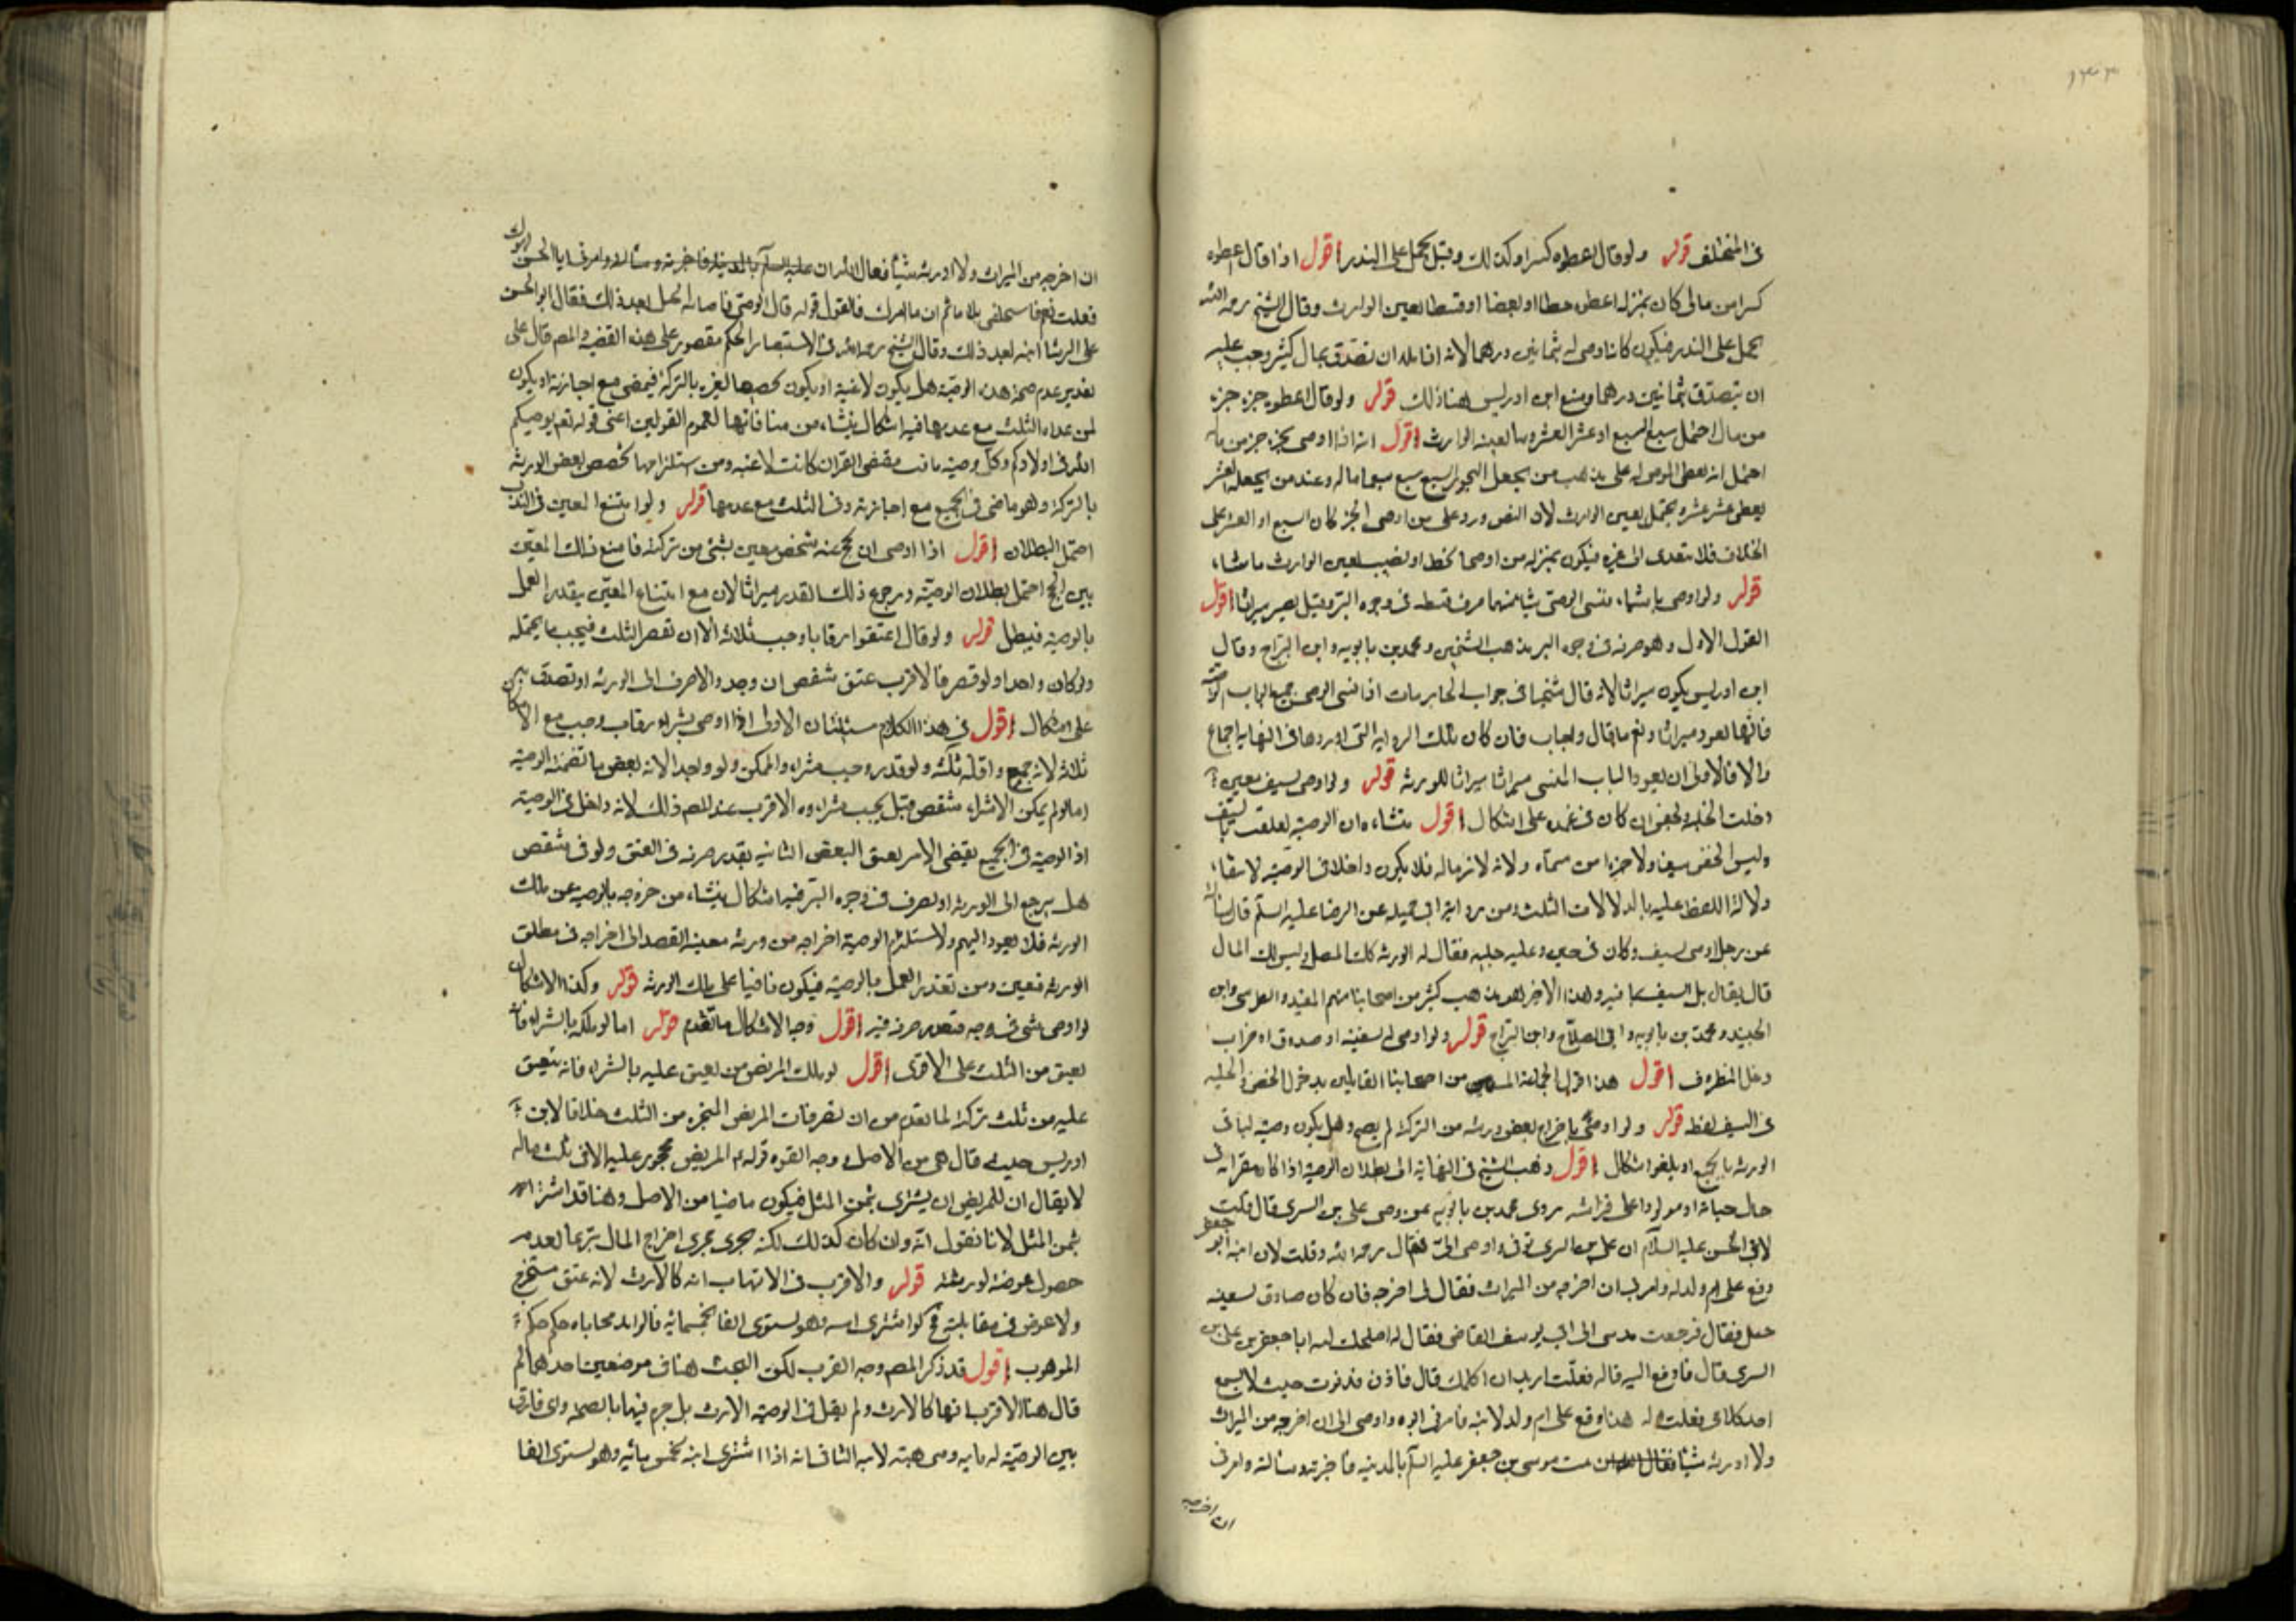 في المختلف قوله ولو قال اعطوه كسرا وكذلك وقيل يحمل على النذر اقول اذا قال اعطوه
من مالى كان بمنزلة اعطوه حظا او بعضا او قسطا الوارث وقال الشيخ رحمه الله
يحمل على النذر فيكون كانه اوصى له بثمانين درهما لانه ان تصدق بمال كثير وجب عليه
ان يتصدق بثمانين درهما ومنع ابن ادريس هنا ذلك قوله ولو قال اعطوه جزء جزء
من مال احتمل سبع السبع او عشر العشر وما يعينه الوارث اقول انه اذا اوصى بجزء جزء من ماله
احتمل انه يعطى الموصى له على مذهب من يجعل الجزء السبع سبع سبع ماله وعند من يجعله العشر
يعطى عشر عشره ويحتمل تعيين الوارث لان النص ورد على من اوصى بجزء كان السبع او العشر على
الخلاف فلا يتعدى الى غيره فيكون بمنزلة من اوصى بحظ او نصيب يعين الوارث ما شاء
قوله ولو اوصى باشياء فنسى الوصي شيئا منها صرف قسطه في وجوه البر وقيل يصير ميراثا اقول
القول الاول وهو صرفه في وجوه البر مذهب الشيخين ومحمد بن بابويه وابن البراج وقال
ابن ادريس يكون ميراثا لانه قال شيخنا في جواب الحايريات اذا نسى الوصى جميع ابواب الوصية
فانها تعود ميراثا ونعم ما قال واجاب فان كان تلك الرواية التي اوردها في النهاية اجماع
والا فالاولى ان يعود الباب المنسى ميراثا للورثة قوله ولو اوصى بسيف معين
دخلت الحلية والجفن ان كان في غمده على اشكال اقول ينشاء من ان الوصية تعلقت بالسيف
وليس الجفن سيفا ولا جزءا من مسماه ولانه لا نزماله فلا يكون داخلا في الوصية لانتفاء
دلالة اللفظ عليه بالدلالات الثلث ومن رواية ابي جميله عن الرضا عليه السلام قال سالته
عن رجل اوصى بسيف وكان في جفن وعليه حليه فقال له الورثة لك النصل وليس لك المال
قال فقال بل السيف بما فيه وهذا الاخير هو مذهب كثير من اصحابنا منهم المفيد والطوسى وابن
الجنيد ومحمد بن بابويه وابي الصلاح وابن البراج قوله ولو اوصى له بسفينة او صندوق او جراب
دخل المظروف اقول هذا قول الجماعة من اصحابنا القائلين بدخول الجفن والحلية
في السيف لفظ قوله ولو اوصى باخراج بعض ورثته من التركة لم يصح وهل يكون وصية لباقى
الورثة بالجميع او يلغو اشكال اقول ذهب الشيخ في النهاية الى بطلان الوصية اذا كان مقرا به في
حال حياته او مولودا على فراشه روى محمد بن بابويه عن وصى على بن السرى قال قلت
لابى الحسن عليه السلام ان على بن السرى توفى واوصى الى فقال رحمه الله وقلت لان ابنه جعفر
وقع على ام ولد له وامرنى ان اخرجه من الميراث فقال لى اخرجه فان كان صادق فسيصيبه
خبل فقال فرجعت فقدمنى الى ابى يوسف القاضى فقال له اصلحك الله انا جعفر بن على بن
السرى قال فادفع اليه ماله فقلت اريد ان اكلمك قال فاذن فدنوت حيث لا يسمع
احد كلامى فقلت له هذا وقع على ام ولد لابيه فامرنى ابوه واوصى الى ان اخرجه من الميراث
ولا اورثه شيئا موسى بن جعفر عليه السلام بالمدينة فاخبرته وسالته وامرنى
ان اخرجه
ان اخرجه من الميراث ولا اورثه شيئا فقال الله ان ابا الحسن امرك
فقلت نعم فاستحلفنى ثلاثا ثم قال انفذ ما امرك فالقول قوله قال الوصى فاصابه الخبل بعد ذلك فقال ابو الحسن
على الوشا رايته بعد ذلك وقال الشيخ رحمه الله في الاستبصار الحكم مقصور على هذه القضيه والمصـ قال على
تقدير عدم صحة هذه الوصية هل يكون لاغية او يكون تخصيصا لغيره بالتركة فيمضى مع اجازته او يكون
لمن عداه الثلث مع عدمها فيه اشكال ينشاء من منافاتها لعموم القرآن اعنى قوله تعم يوصيكم
الله في اولادكم وكل وصية نافت مقتضى القرآن كانت لاغية ومن استلزامها تخصيص بعض الورثة
بالتركة وهو ماض في الجميع مع اجازته وفى الثلث مع عدمها قوله ولو امتنع المعين في الندب
احتمل البطلان اقول اذا اوصى ان يحج عنه شخص معين بشئ من تركته فامتنع ذلك المعين
من الحج احتمل بطلان الوصية ورجوع ذلك القدر ميراثا لان مع امتناع المعين يتعذر العمل
بالوصية فيبطل قوله ولو قال اعتقوا رقابا وجب ثلاثة الا ان تقصر الثلث فيجب ما يحتمله
ولو كان واحدا ولو قصر فالاقرب عتق شقص ان وجد والا صرف الى الورثة او تصدق به
على اشكال اقول في هذا الكلام مسئلتان الاولى اذا اوصى بشراء رقاب وجب مع الامكان
ثلاثة لانه جمع واقله ثلثة ولو تعذر وجب شراء الممكن ولو واحدا لانه بعض ما تضمنه الوصية
اما لو لم يمكن الا شراء شقص قيل يجب شراءه وهو الاقرب عند المصـ وذلك لانه داخل في الوصية
اذ الوصية في الجميع يقتضى الامر بعتق البعض الثانية بتقدير صرفه في العتق ولو في شقص
هل يرجع الى الورثة او يصرف في وجوه البر فيه اشكال ينشاء من خروجه بالوصية عن ملك
الورثة فلا يعود اليهم ولاستلزام الوصية اخراجه من ورثه معينة القصد الى اخراجه في مطلق
ومن تعذر العمل بالوصية فيكون باقيا على ملك الورثة قوله وكذا الاشكال
لو اوصى بشئ في وجه فتعذر صرفه فيه اقول وجه الاشكال ما تقدم قوله اما لو ملكه بالشراء فانه
يعتق من الثلث على الاقوى اقول لو ملك المريض من يعتق عليه بالشراء فانه يعتق
عليه من ثلث تركته لما تقدم من ان تصرفات المريض المنجزه من الثلث خلافا لابن
ادريس حيث قال هى من الاصل ووجه القوه قوله المريض محجور عليه الا في ثلث ماله
لا يقال ان للمريض ان يشترى بثمن المثل فيكون ماضيا من الاصل وهنا قد اشترى
بثمن المثل لانا نقول انه وان كان كذلك لكنه يجرى مجرى اخراج المال تبرعا لعدم
حصول عوضه لورثته قوله والاقرب في الاتهاب انه كالارث لانه عتق مستحق
ولا عوض في مقابلته فح لو اشترى ابنه وهو يستوى الفا بخمسمائة فالزايد محاباه حكمه حكم
الموهوب اقول قد ذكر المصـ وجه القرب لكن البحث هنا في موضعين احدهما لم
قال هنا الاقرب انها كالارث ولم يقل في الوصية الارث بل جزم فيها بالصحة واى فارق
بين الوصية له بابيه ومن هبته لابيه الثانى انه اذا اشترى ابنه بخمس مائة وهو يستوى الفا